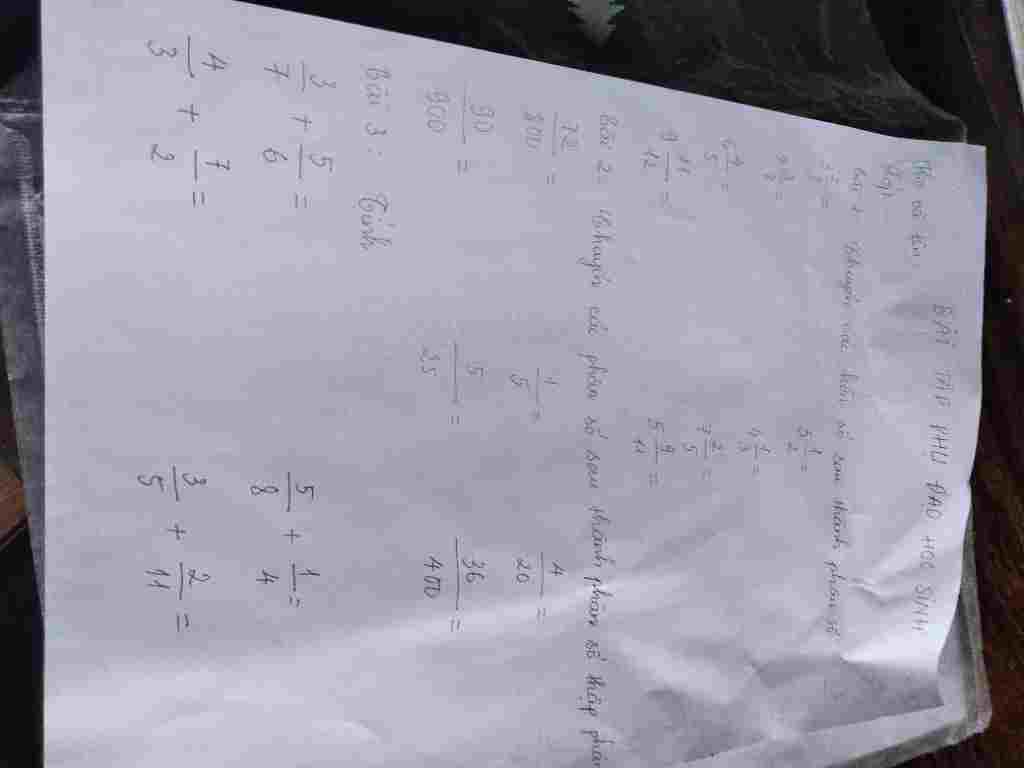 BÀI TẬP PHỤ ĐẠO HỌC SINH
Họ và tên:
Lớp:
Bài 1: Chuyển các hỗn số sau thành phân số
= 5 1/2 =
= 4 1/3 =
6 2/5 = 7 2/5 =
9 11/12 = 5 9/11 =
Bài 2: Chuyển các phân số sau thành phân số thập phân
72/800 = 1/5 = 4/20 =
90/900 = 5/25 = 36/400 =
Bài 3: Tính
3/7 + 5/6 = 5/8 + 1/4 =
4/3 + 7/2 = 3/5 + 2/11 =